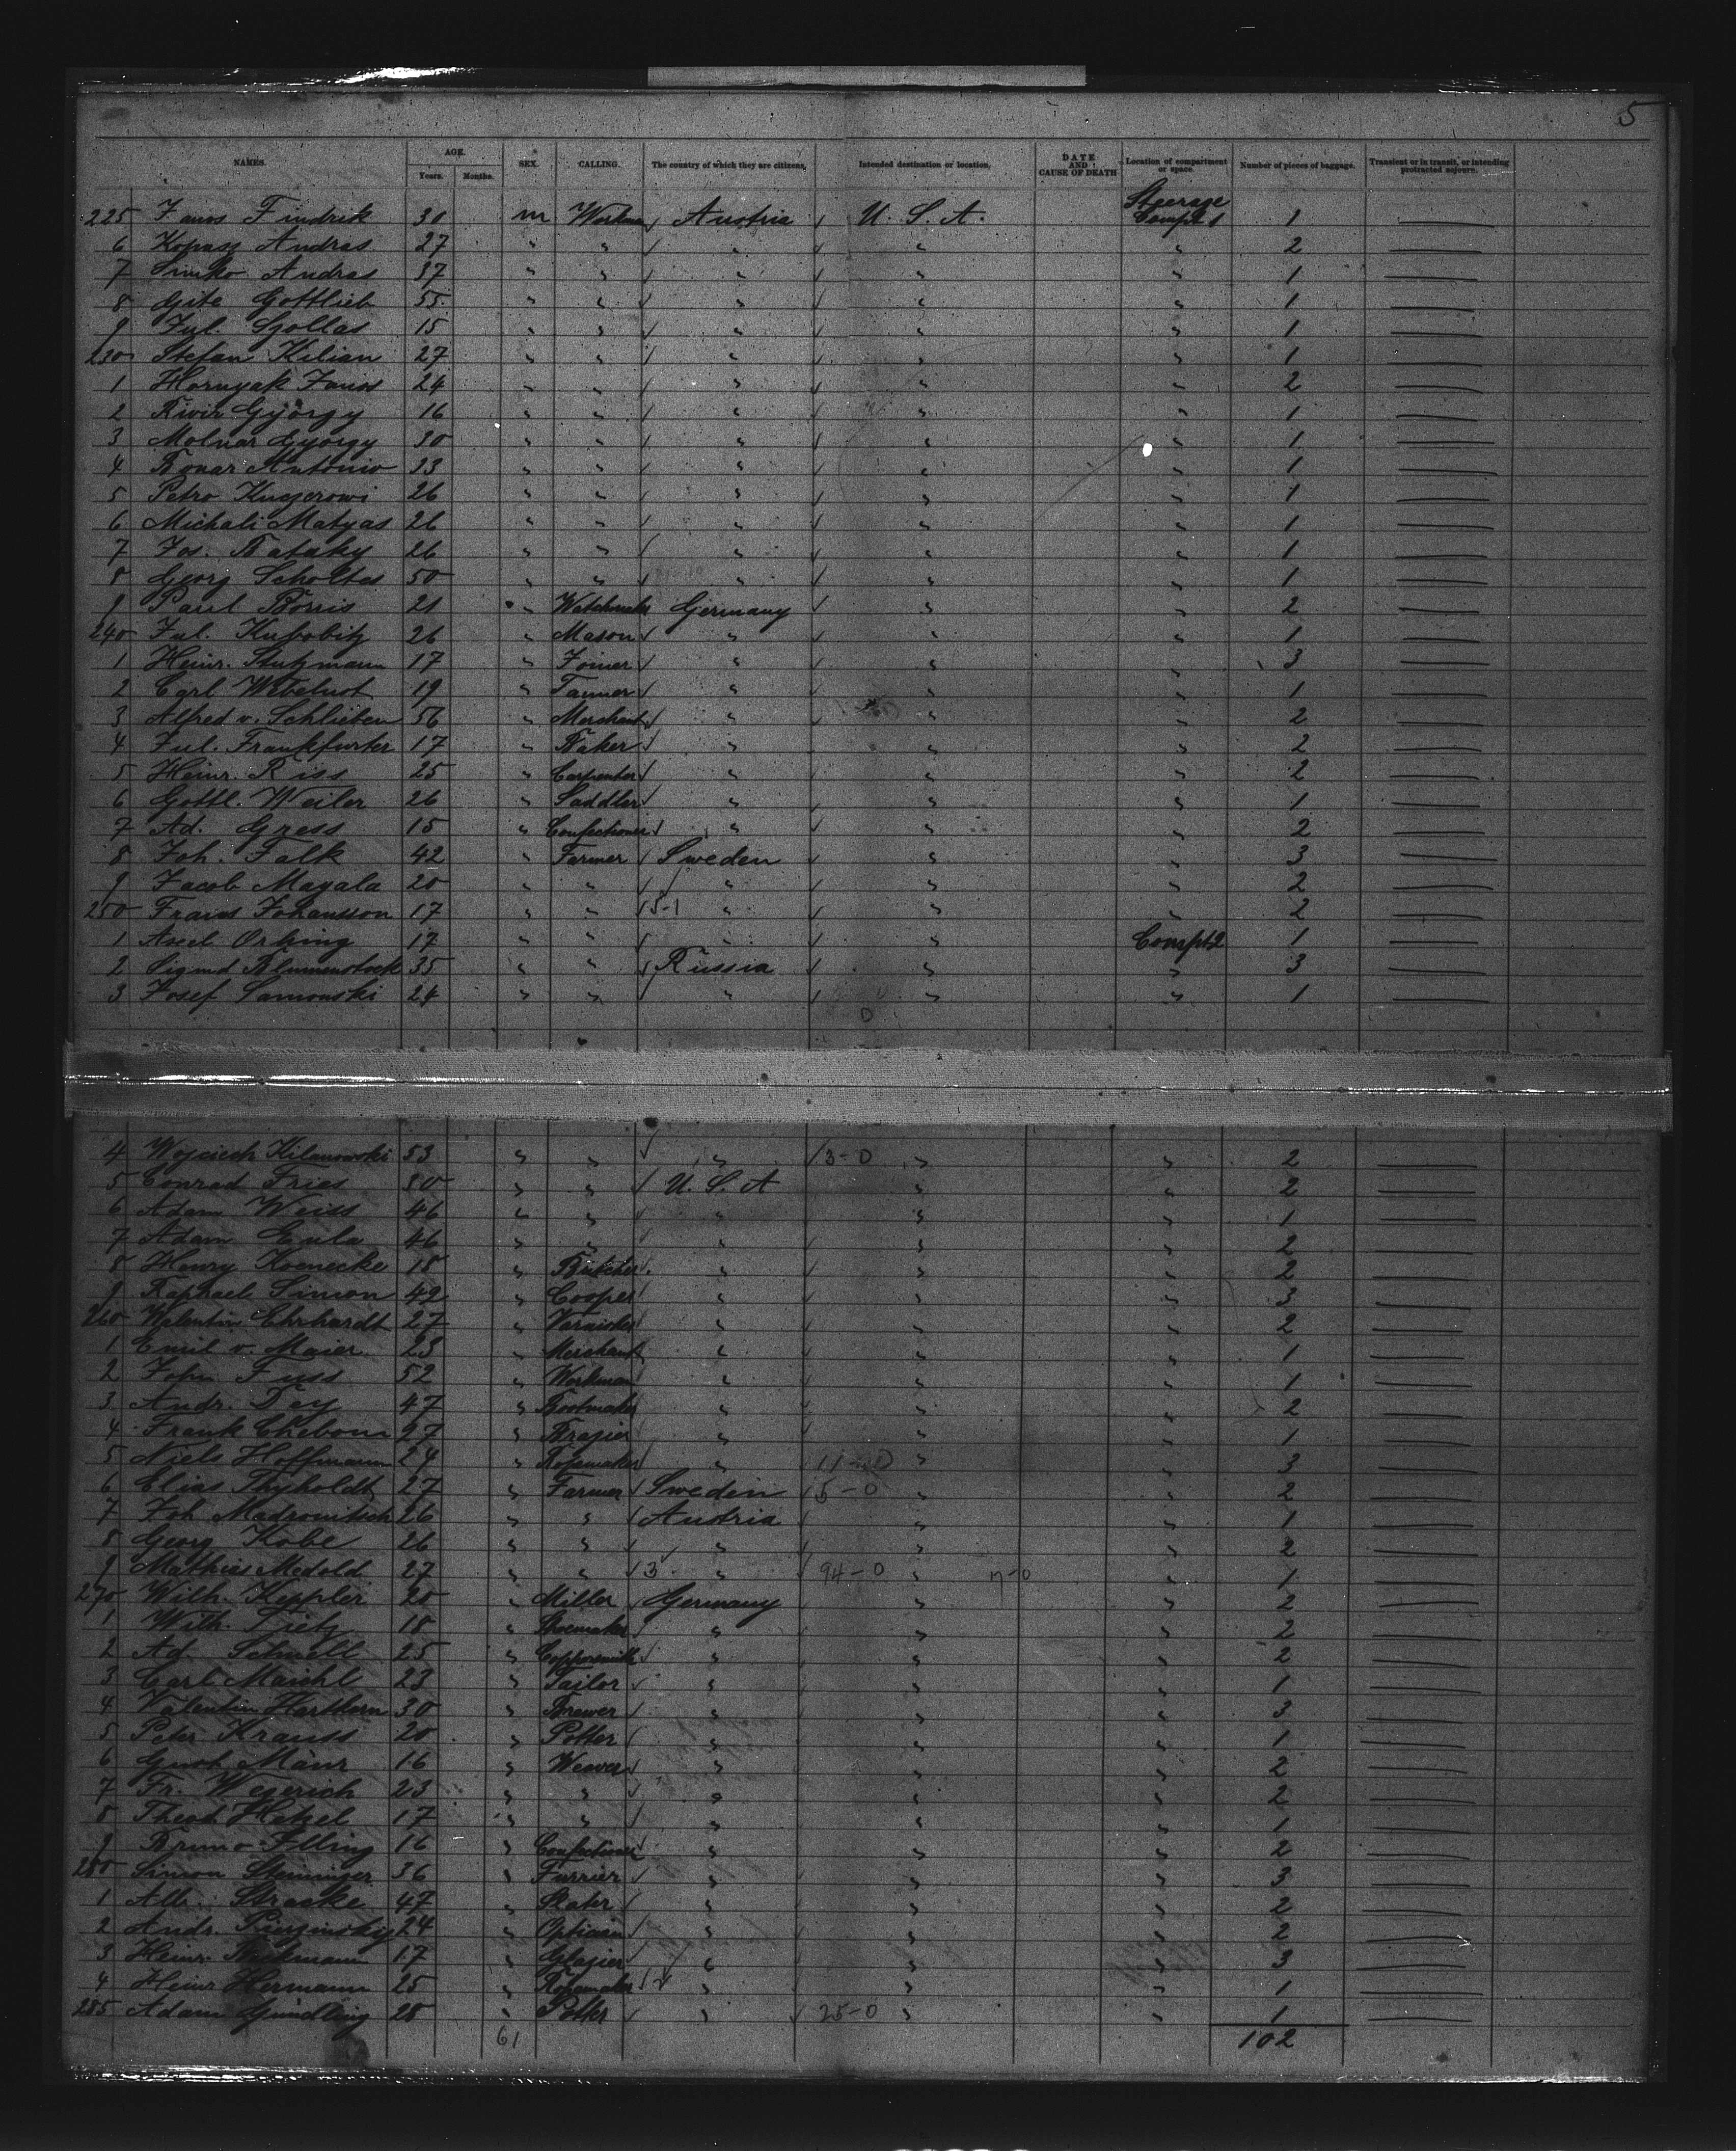 5
NAMES. AGE. Years. Months. SEX. CALLING. The country of which they are citizens. Intended destination or location. DATE AND CAUSE OF DEATH Location of compartment or space. Number of pieces of baggage. Transient or in transit, or intending protracted sojourn.
225 Janos Findrik 30 m Workman Austria U. S. A. Steerage Compt 1 1
6 Kopasz Andras 27 " " " " " 2
7 Simko Andras 37 " " " " " 1
8 Gite Gottlieb 55 " " " " " 1
9 Jul. Szollas 15 " " " " " 1
230 Stefan Kilian 27 " " " " " 1
1 Hornyak Janos 24 " " " " " 2
2 György 16 " " " " " 1
3 Molnar György 30 " " " " " 1
4 Antonio 33 " " " " " 1
5 Petro 26 " " " " " 1
6 Michali Matyas 26 " " " " " 1
7 Jos. Bataky 26 " " " " " 1
8 Georg Scholtes 50 " " " " " 1
9 Paul Borris 21 " Watchmaker Germany " " 2
240 Jul. Kubobitz 26 " Mason " " " 1
1 Heinr. Stutzmann 17 " Joiner " " " 3
2 Carl 19 " Tanner " " " 1
3 Alfred v. Schlieben 56 " Merchant " " " 2
4 Jul. Frankfurter 17 " Baker " " " 2
5 Heinr. Riss 25 " Carpenter " " " 2
6 Gottl. Weiler 26 " Saddler " " " 1
7 Ad. Gress 15 " Confectioner " " " 2
8 Joh. Falk 42 " Farmer Sweden " " 3
9 Jacob Magala 20 " " " " " 2
250 Frans Johansson 17 " " 5-1 " " " 2
1 Axel Orhing 17 " " " " Compt 2 1
2 Sigmd Blumenstock 35 " " Russia " " 3
3 Josef Samowski 24 " " " " " 1
0
4 Wojciech Kilanowski 53 " " " 3-0 " " 2
5 Conrad Fries 50 " " U. S. A " " 2
6 Adam Weiss 46 " " " " " 1
7 Adam Eula 46 " " " " " 2
8 Henry Koenecke 18 " Butcher " " " 2
9 Raphael Simon 42 " Cooper " " " 3
260 Valentin Ehrhardt 27 " Varnisher " " " 2
1 Emil v. Maier 23 " Merchant " " " 1
2 John Fuss 52 " Workman " " " 1
3 Andr. Dey 47 " Bootmaker " " " 2
4 Frank Chebonn 27 " Brazier " " " 1
5 Niels Hoffmann 24 " Ropemaker " 11-0 " " 3
6 Elias Thyholdt 27 " Farmer Sweden 5-0 " " 2
7 Joh Madronitsch 26 " " Austria " " 1
8 Georg Kobe 26 " " " " " 2
9 Mathias Medold 27 " " 3 " 94-0 " " 1
270 Wilh. Keppler 20 " Miller Germany " " 2
1 Wilh. Tietz 18 " Shoemaker " " " 2
2 Ad. Schnell 25 " Coppersmith " " " 2
3 Carl Maichl 23 " Tailor " " " 1
4 Valentin Hartkorn 30 " Brewer " " " 3
5 Peter Krauss 20 " Potter " " " 1
6 Gust. 16 " Weaver " " " 2
7 Fr. Wegerich 23 " " " " " 2
8 Theod. Hetzel 17 " " " " " 1
9 Bruno Elling 16 " Confectioner " " " 2
280 Simon Steininger 36 " Furrier " " " 3
1 Alb. Stracke 47 " Slater " " " 2
2 Andr. 24 " Optician " " " 2
3 Heinr. 17 " Glazier " " " 3
4 Heinr Hermann 25 " Ropemaker " " " 1
285 Adam Gündling 28 " Potter " 25-0 " " 1
61 102